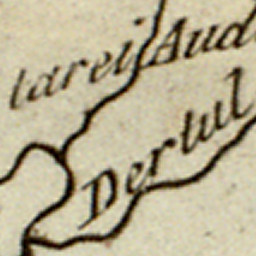 tarei Aud
Dertul